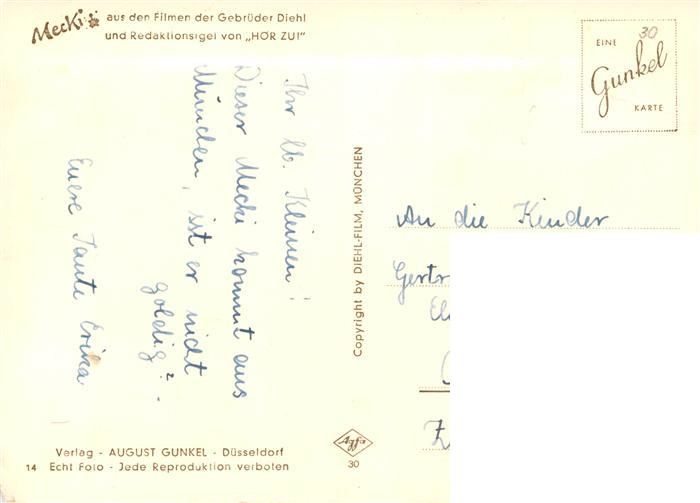 Mecki aus den Filmen der Gebrüder Diehl
und Redaktionsigel von „HÖR ZU!"
30
EINE
Gunkel
KARTE
Ihr lb. Kleinen!
Dieser Mecki kommt aus
München, ist er nicht
goldig? -
Euere Tante Erika
Copyright by DIEHL-FILM, MÜNCHEN
An die Kinder
Gertr
Verlag - AUGUST GUNKEL - Düsseldorf
14 Echt Foto - Jede Reproduktion verboten
Agfa
30